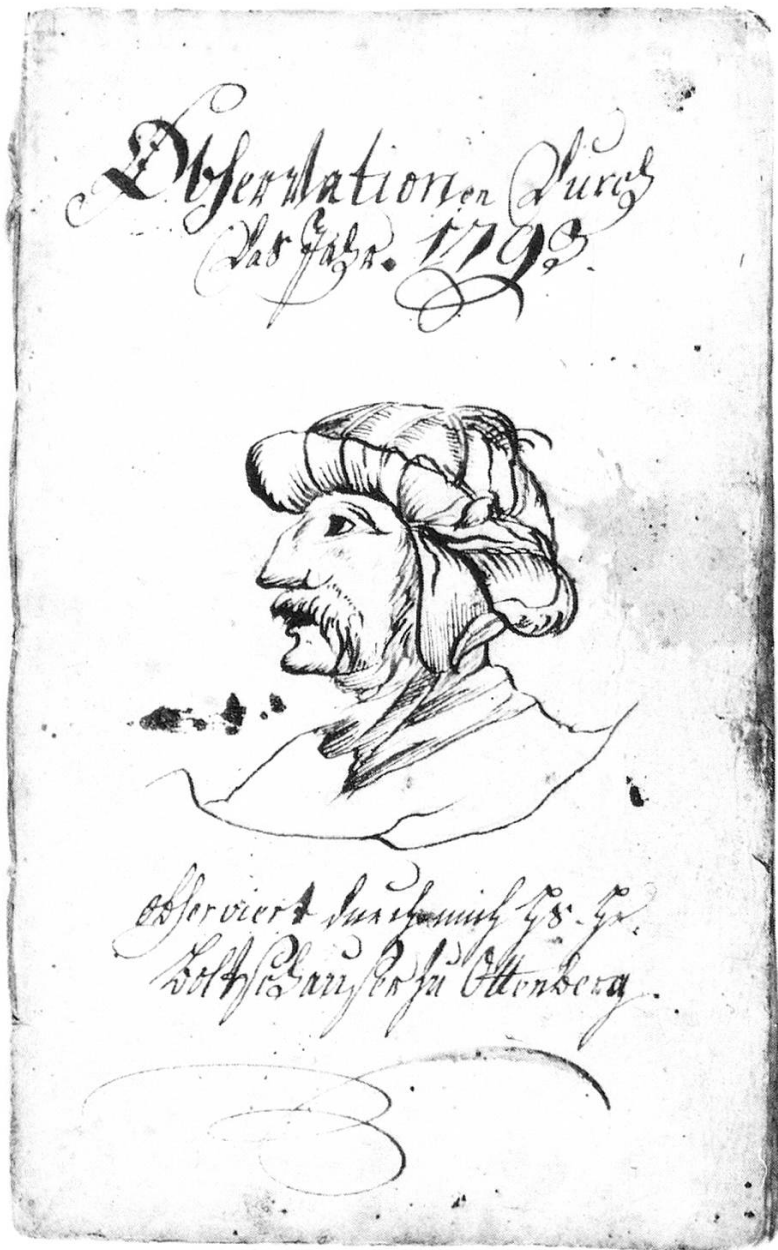 Observationen Durch
Das Jahr. 1793.
observiert durch mich Hs. Hr.
Boltshauser zu Ottenberg.